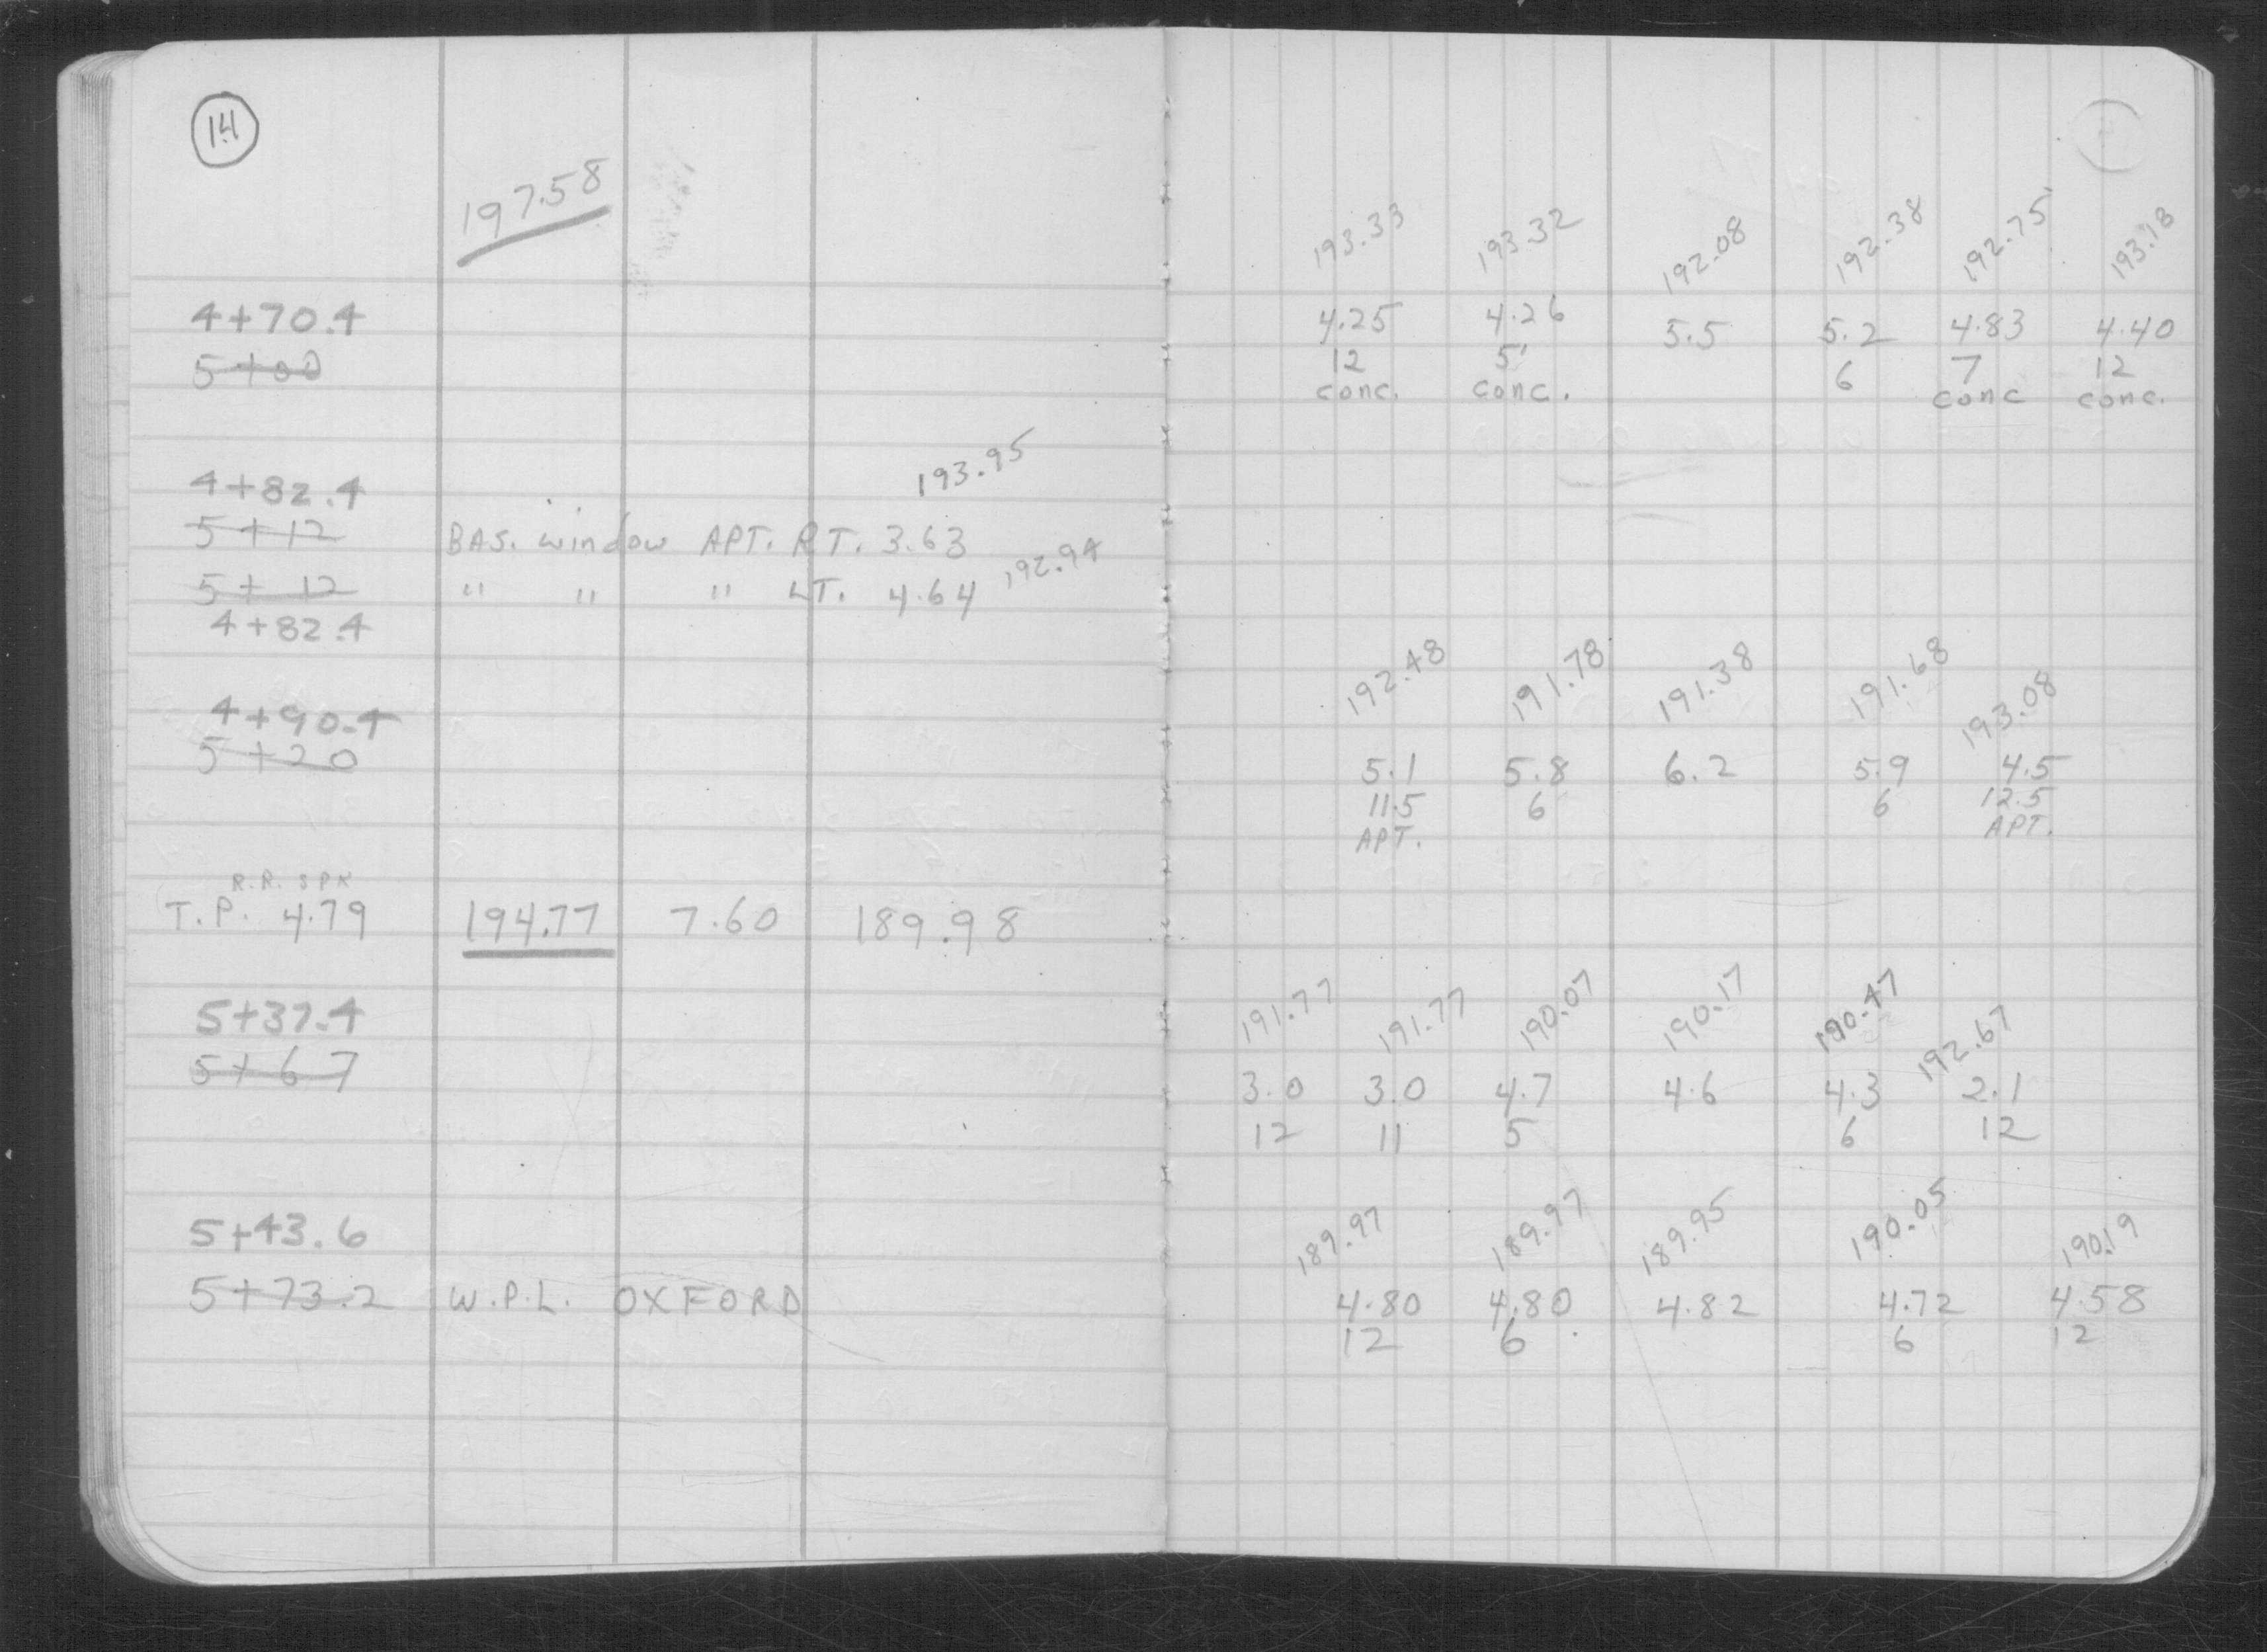 14
197.58
193.33 193.32 192.08 192.38 192.75 193.18
4+70.4 4.25 4.26 5.5 5.2 4.83 4.40
5+00 12 5' 6 7 12
conc. conc. conc conc.
193.95
4+82.4
5+12 BAS. window APT. RT. 3.63
192.94
5+12 " " " LT. 4.64
4+82.4
192.48 191.78 191.38 191.68 193.08
4+90.4
5+20 5.1 5.8 6.2 5.9 4.5
11.5 6 6 12.5
APT. APT.
R.R. SPK
T.P. 4.79 194.77 7.60 189.98
191.77 191.77 190.07 190.17 190.47 192.67
5+37.4
5+67 3.0 3.0 4.7 4.6 4.3 2.1
12 11 5 6 12
189.97 189.97 189.95 190.05 190.19
5+43.6
5+73.2 W.P.L. OXFORD 4.80 4.80 4.82 4.72 4.58
12 6 6 12